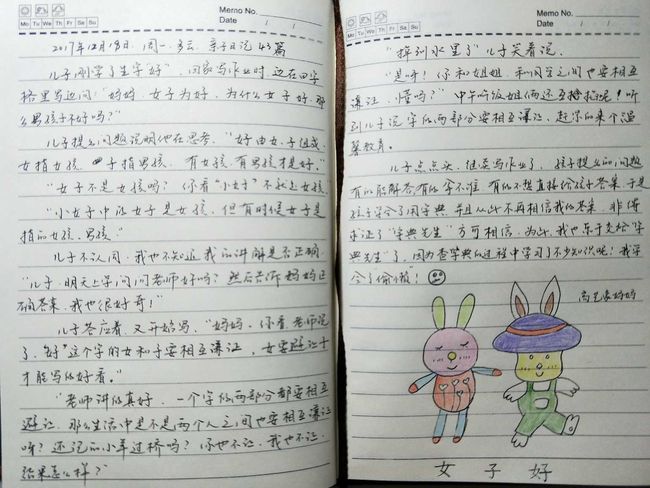 Memo No.
Mo Tu We Th Fr Sa Su
Date / /
2017年12月18日 周一 多云 亲子日记43篇
儿子刚学了生字"好"，回家写作业时，边在田字
格里写边问："妈妈，女子为好，为什么女子好，那
么男孩子不好吗？"
儿子提出问题说明他在思考，"好由女、子组成，
女指女孩，子指男孩，有女孩，有男孩才是好。"
"女子不是女孩吗？你看"小女子"不就是女孩"
"小女子中的女子是女孩，但有时候女子是
指的女孩、男孩。"
儿子不认同，我也不知道我的讲解是否正确
"儿子，明天上学问问老师好吗？然后告诉妈妈正
确答案，我也很好奇！"
儿子答应着，又开始写，"妈妈，你看，老师说
了，"好"这个字的女和子要相互谦让，女要避让子
才能写的好看。"
"老师讲的真好，一个字的两部分都要相互
避让，那么生活中是不是两个人之间也要相互谦让
呀？还记的小羊过桥吗？你也不让，我也不让，
结果怎么样？"
Memo No.
Mo Tu We Th Fr Sa Su
Date / /
"掉到水里了"儿子笑着说。
"是呀！你和姐姐，和同学之间也要相互
谦让，懂吗？"中午吃饭姐俩还互掐呢！听
到儿子说字的两部分要相互谦让，赶紧的来个温
馨教育。
儿子点点头，继续写作业了，孩子提出的问题
有的能解答有的拿不准，有的不想直接给孩子答案，于是
孩子学会了用字典，并且从此不再相信我的答案，非得
求证了"字典先生"方可相信，为此，我也乐于交给"字
典先生"了，因为查字典的过程中学习了不少知识呢！我学
会了偷懒！
妈妈
女 子 好